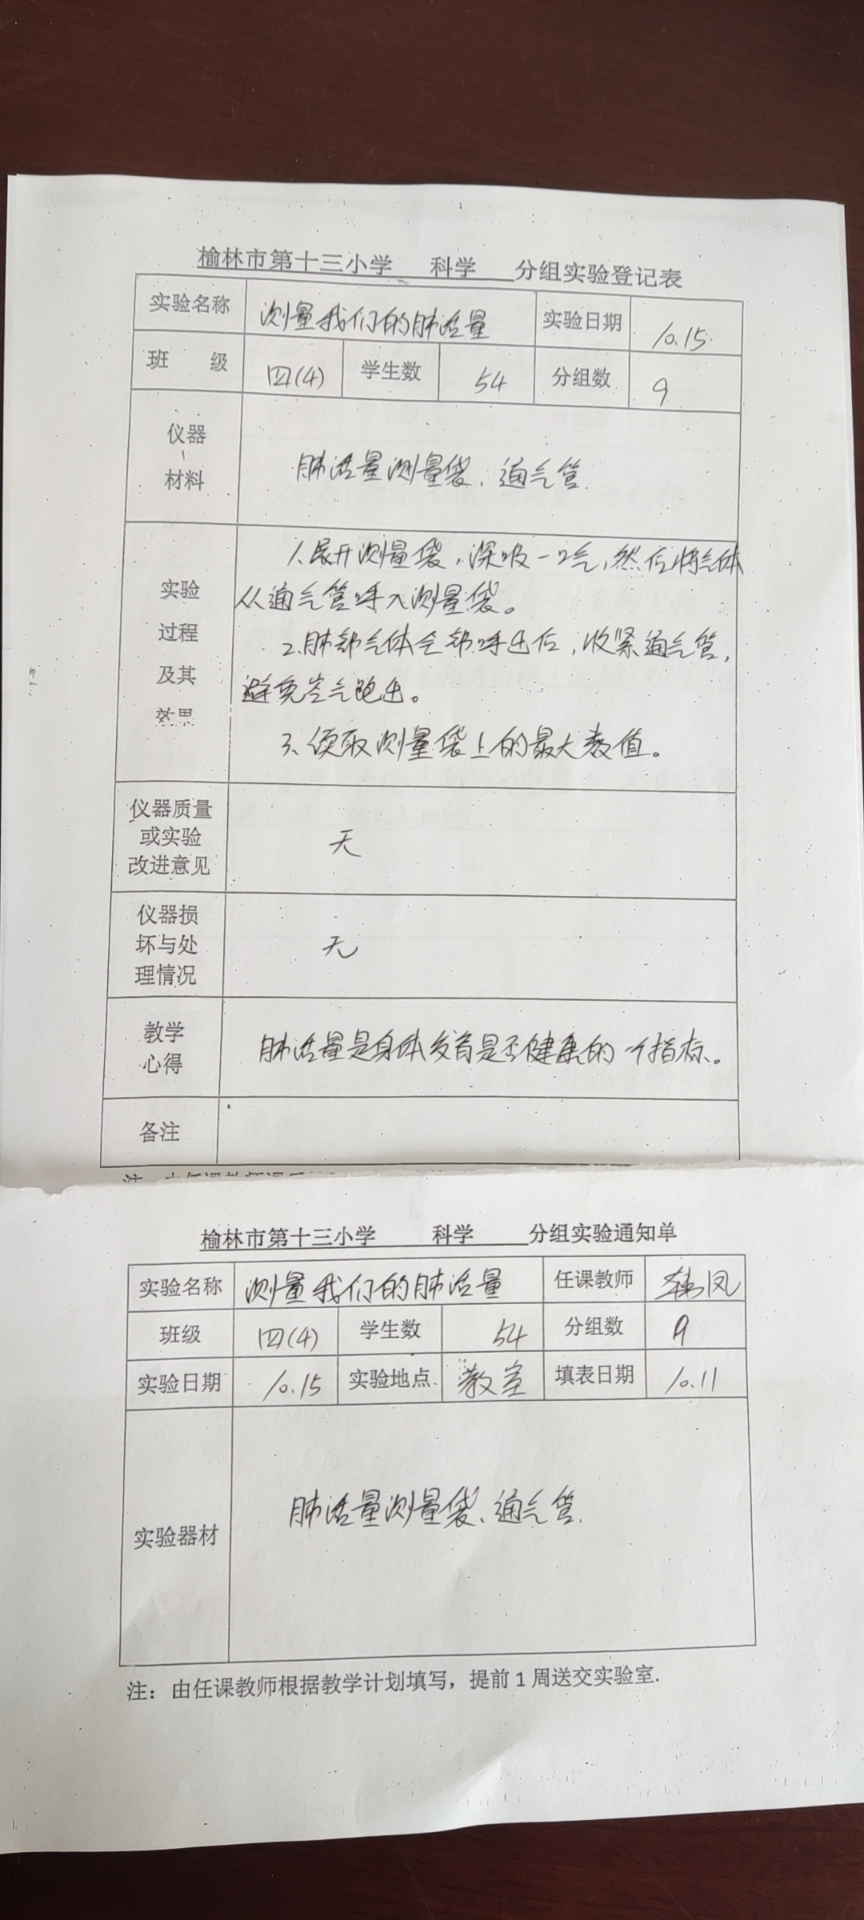 榆林市第十三小学 科学 分组实验登记表
实验名称 测量我们的肺活量 实验日期 10.15.
班 级 四(4) 学生数 54 分组数 9
仪器
、
材料
肺活量测量袋、通气管.
实验
过程
及其
效果
1.展开测量袋,深吸一口气,然后将气体
从通气管呼入测量袋。
2.肺部气体全部呼出后,收紧通气管,
避免空气跑出。
3.读取测量袋上的最大数值。
仪器质量
或实验
改进意见
无
仪器损
坏与处
理情况
无
教学
心得
肺活量是身体发育是否健康的一个指标。
备注
榆林市第十三小学 科学 分组实验通知单
实验名称 测量我们的肺活量 任课教师 韩凤
班级 四(4) 学生数 54 分组数 9
实验日期 10.15 实验地点 教室 填表日期 10.11
实验器材 肺活量测量袋、通气管.
注:由任课教师根据教学计划填写,提前1周送交实验室.